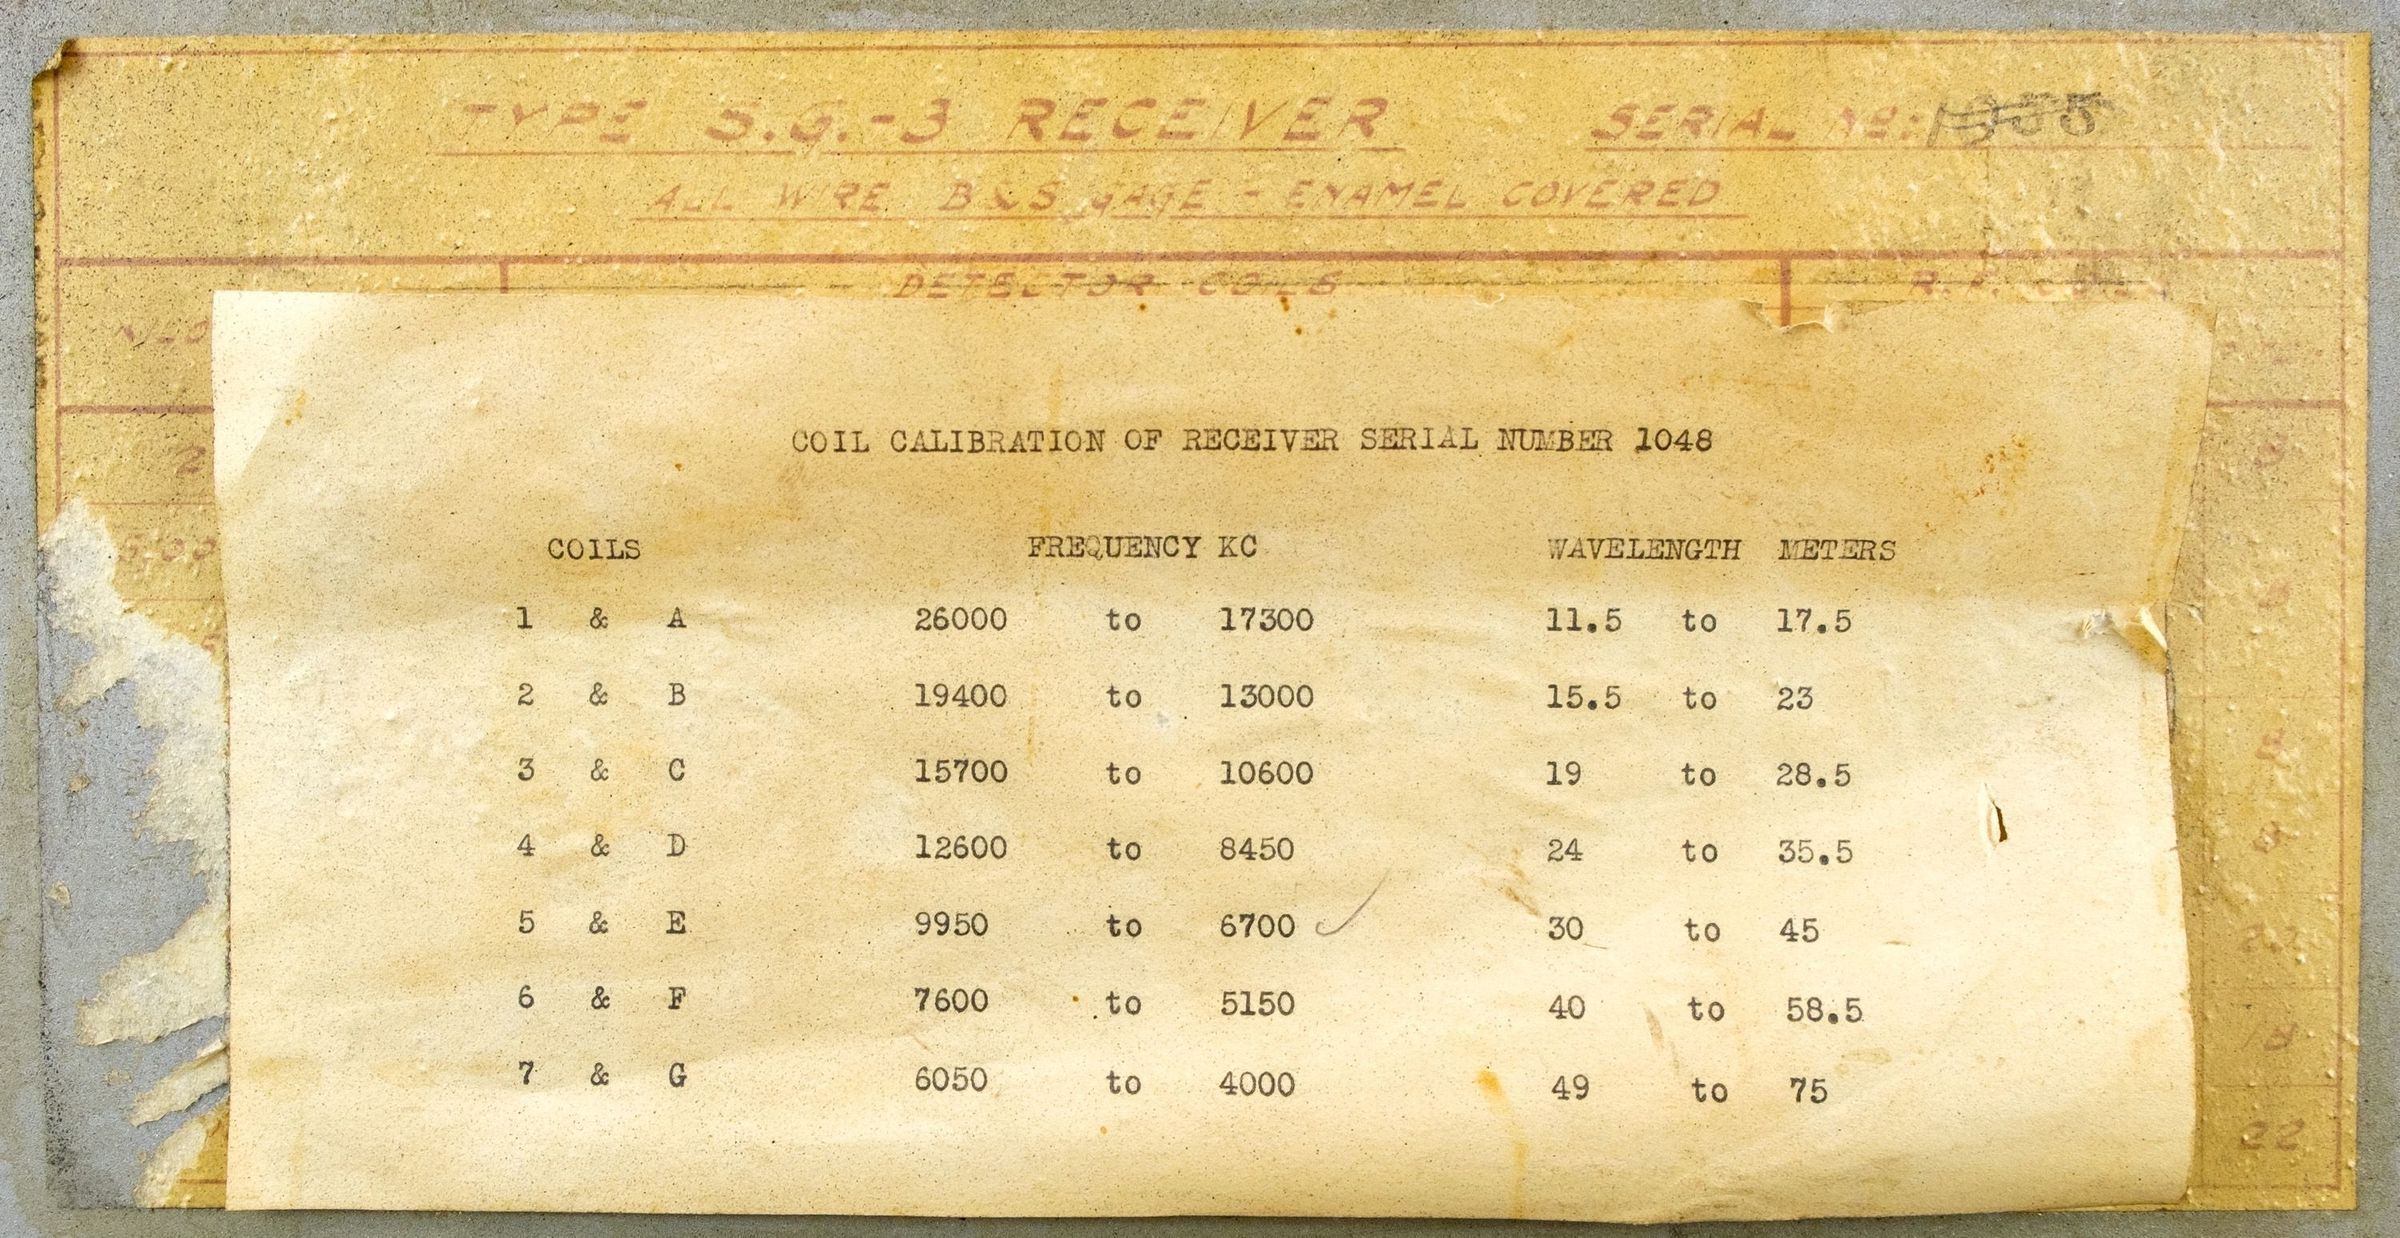 TYPE S.G.-3 RECEIVER SERIAL NO:
ALL WIRE B&S GAGE - ENAMEL COVERED
DETECTOR COILS R.F.
COIL CALIBRATION OF RECEIVER SERIAL NUMBER 1048
COILS FREQUENCY KC WAVELENGTH METERS
1 & A 26000 to 17300 11.5 to 17.5
2 & B 19400 to 13000 15.5 to 23
3 & C 15700 to 10600 19 to 28.5
4 & D 12600 to 8450 24 to 35.5
5 & E 9950 to 6700 30 to 45
6 & F 7600 to 5150 40 to 58.5
7 & G 6050 to 4000 49 to 75
22